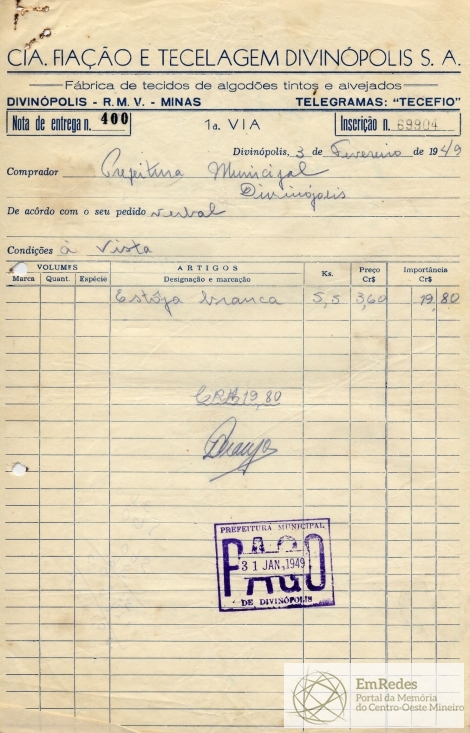 CIA. FIAÇÃO E TECELAGEM DIVINÓPOLIS S. A.
Fábrica de tecidos de algodões tintos e alvejados
DIVINÓPOLIS - R. M. V. - MINAS TELEGRAMAS: "TECEFIO"
Nota de entrega n. 400 1a. VIA Inscrição n. 69904
Divinópolis, 3 de Fevereiro de 1949
Comprador Prefeitura Municipal
Divinópolis
De acôrdo com o seu pedido verbal
Condições à Vista
VOLUMES ARTIGOS Ks. Preço Cr$ Importância Cr$
Marca Quant. Espécie Designação e marcação
Estôpa branca 5,5 3,60 19,80
CR$ 19,80
Araujo
PREFEITURA MUNICIPAL
PAGO
31 JAN. 1949
DE DIVINÓPOLIS
EmRedes
Portal da Memória
do Centro-Oeste Mineiro